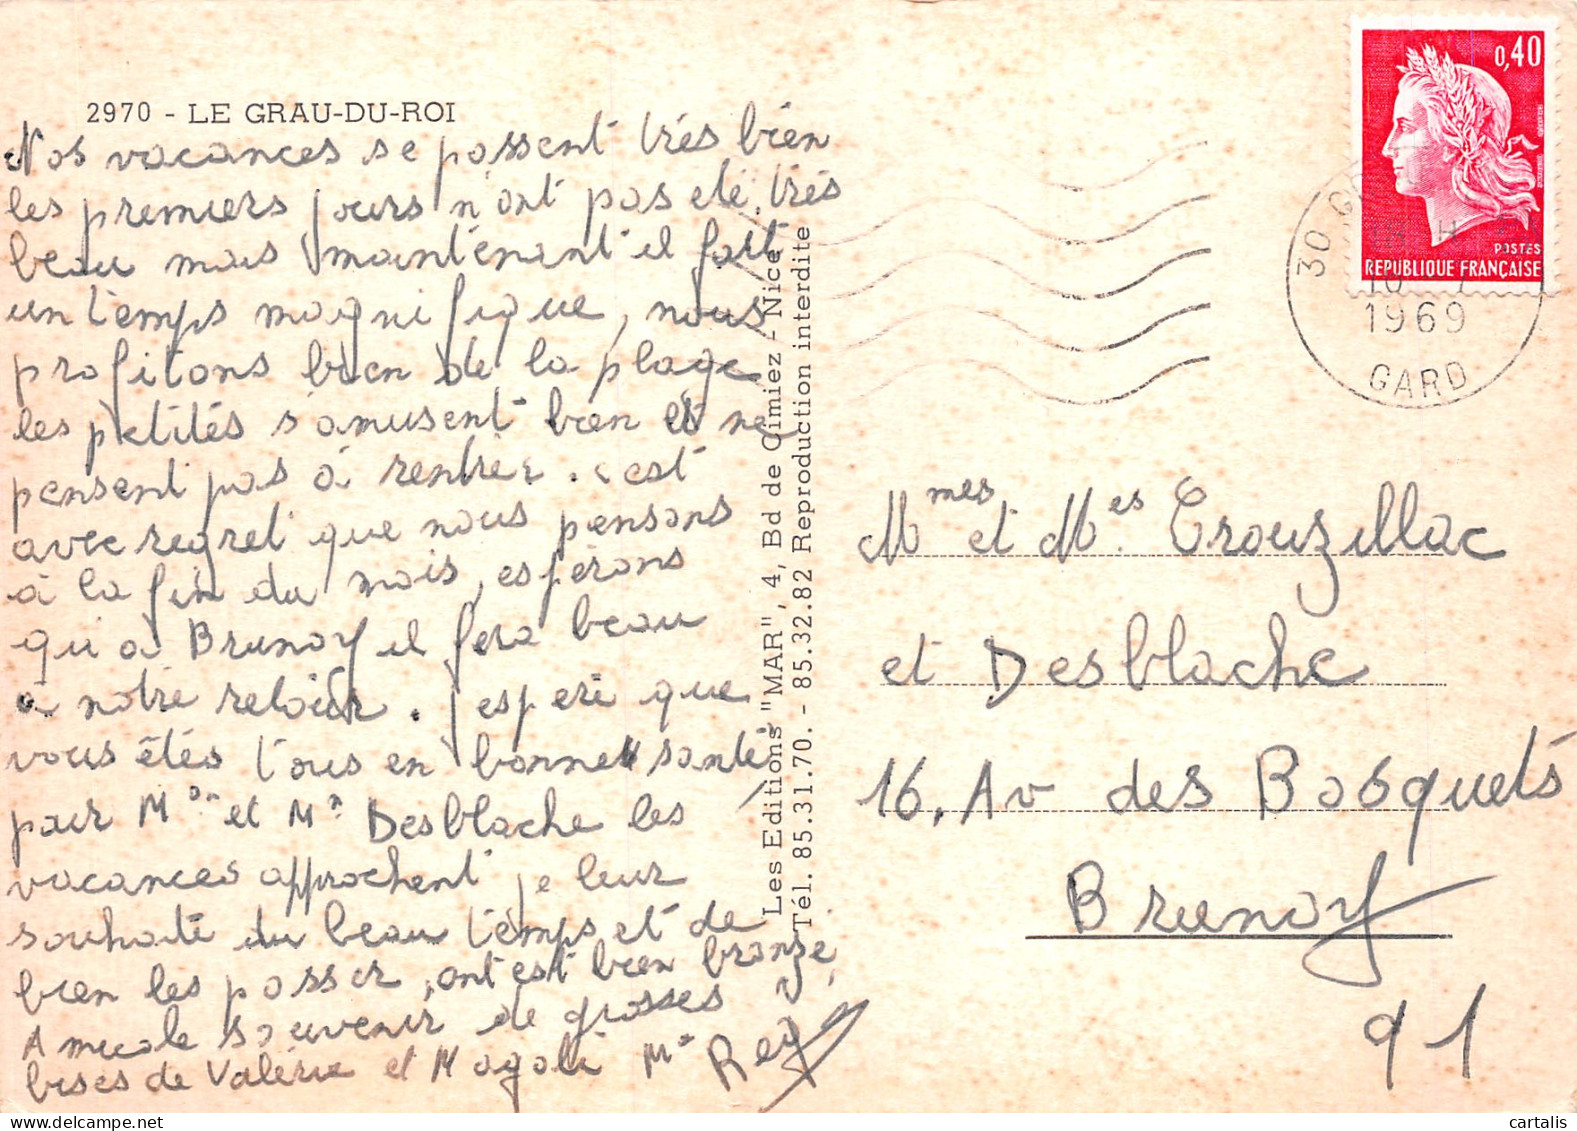 2970 - LE GRAU-DU-ROI
Nos vacances se passent très bien
les premiers jours n'ont pas eté très
beau mais maintenant il fait
un temps magnifique, nous
profitons bien de la plage
les petités s'amusent bien et ne
pensent pas à rentrer. c'est
avec regret que nous pensons
à la fin du mois, espérons
qui à Brunoy il fera beau
a notre retour. j'esperé que
vous étés tous en bonne santé
pour Mr et Me Desblache les
vacances approchent je leur
souhaite du beau temps et de
bien les passer, ont est bien bronzé,
Amicale souvenir de grosses
bises de Valérie et Magali Me Rey
Les Editions "MAR", 4, Bd de Cimiez - Nice
Tél. 85.31.70. - 85.32.82 Reproduction interdite
0,40
POSTES
REPUBLIQUE FRANÇAISE
30
1969
GARD
Mmes et Mes. Trouzillac
et Desblache
16, Av des Bosquets
Brunoy
91
www.cartalis.com